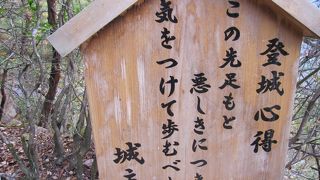 登城心得
この先足もと
悪しきにつき
気をつけて歩むべ
城